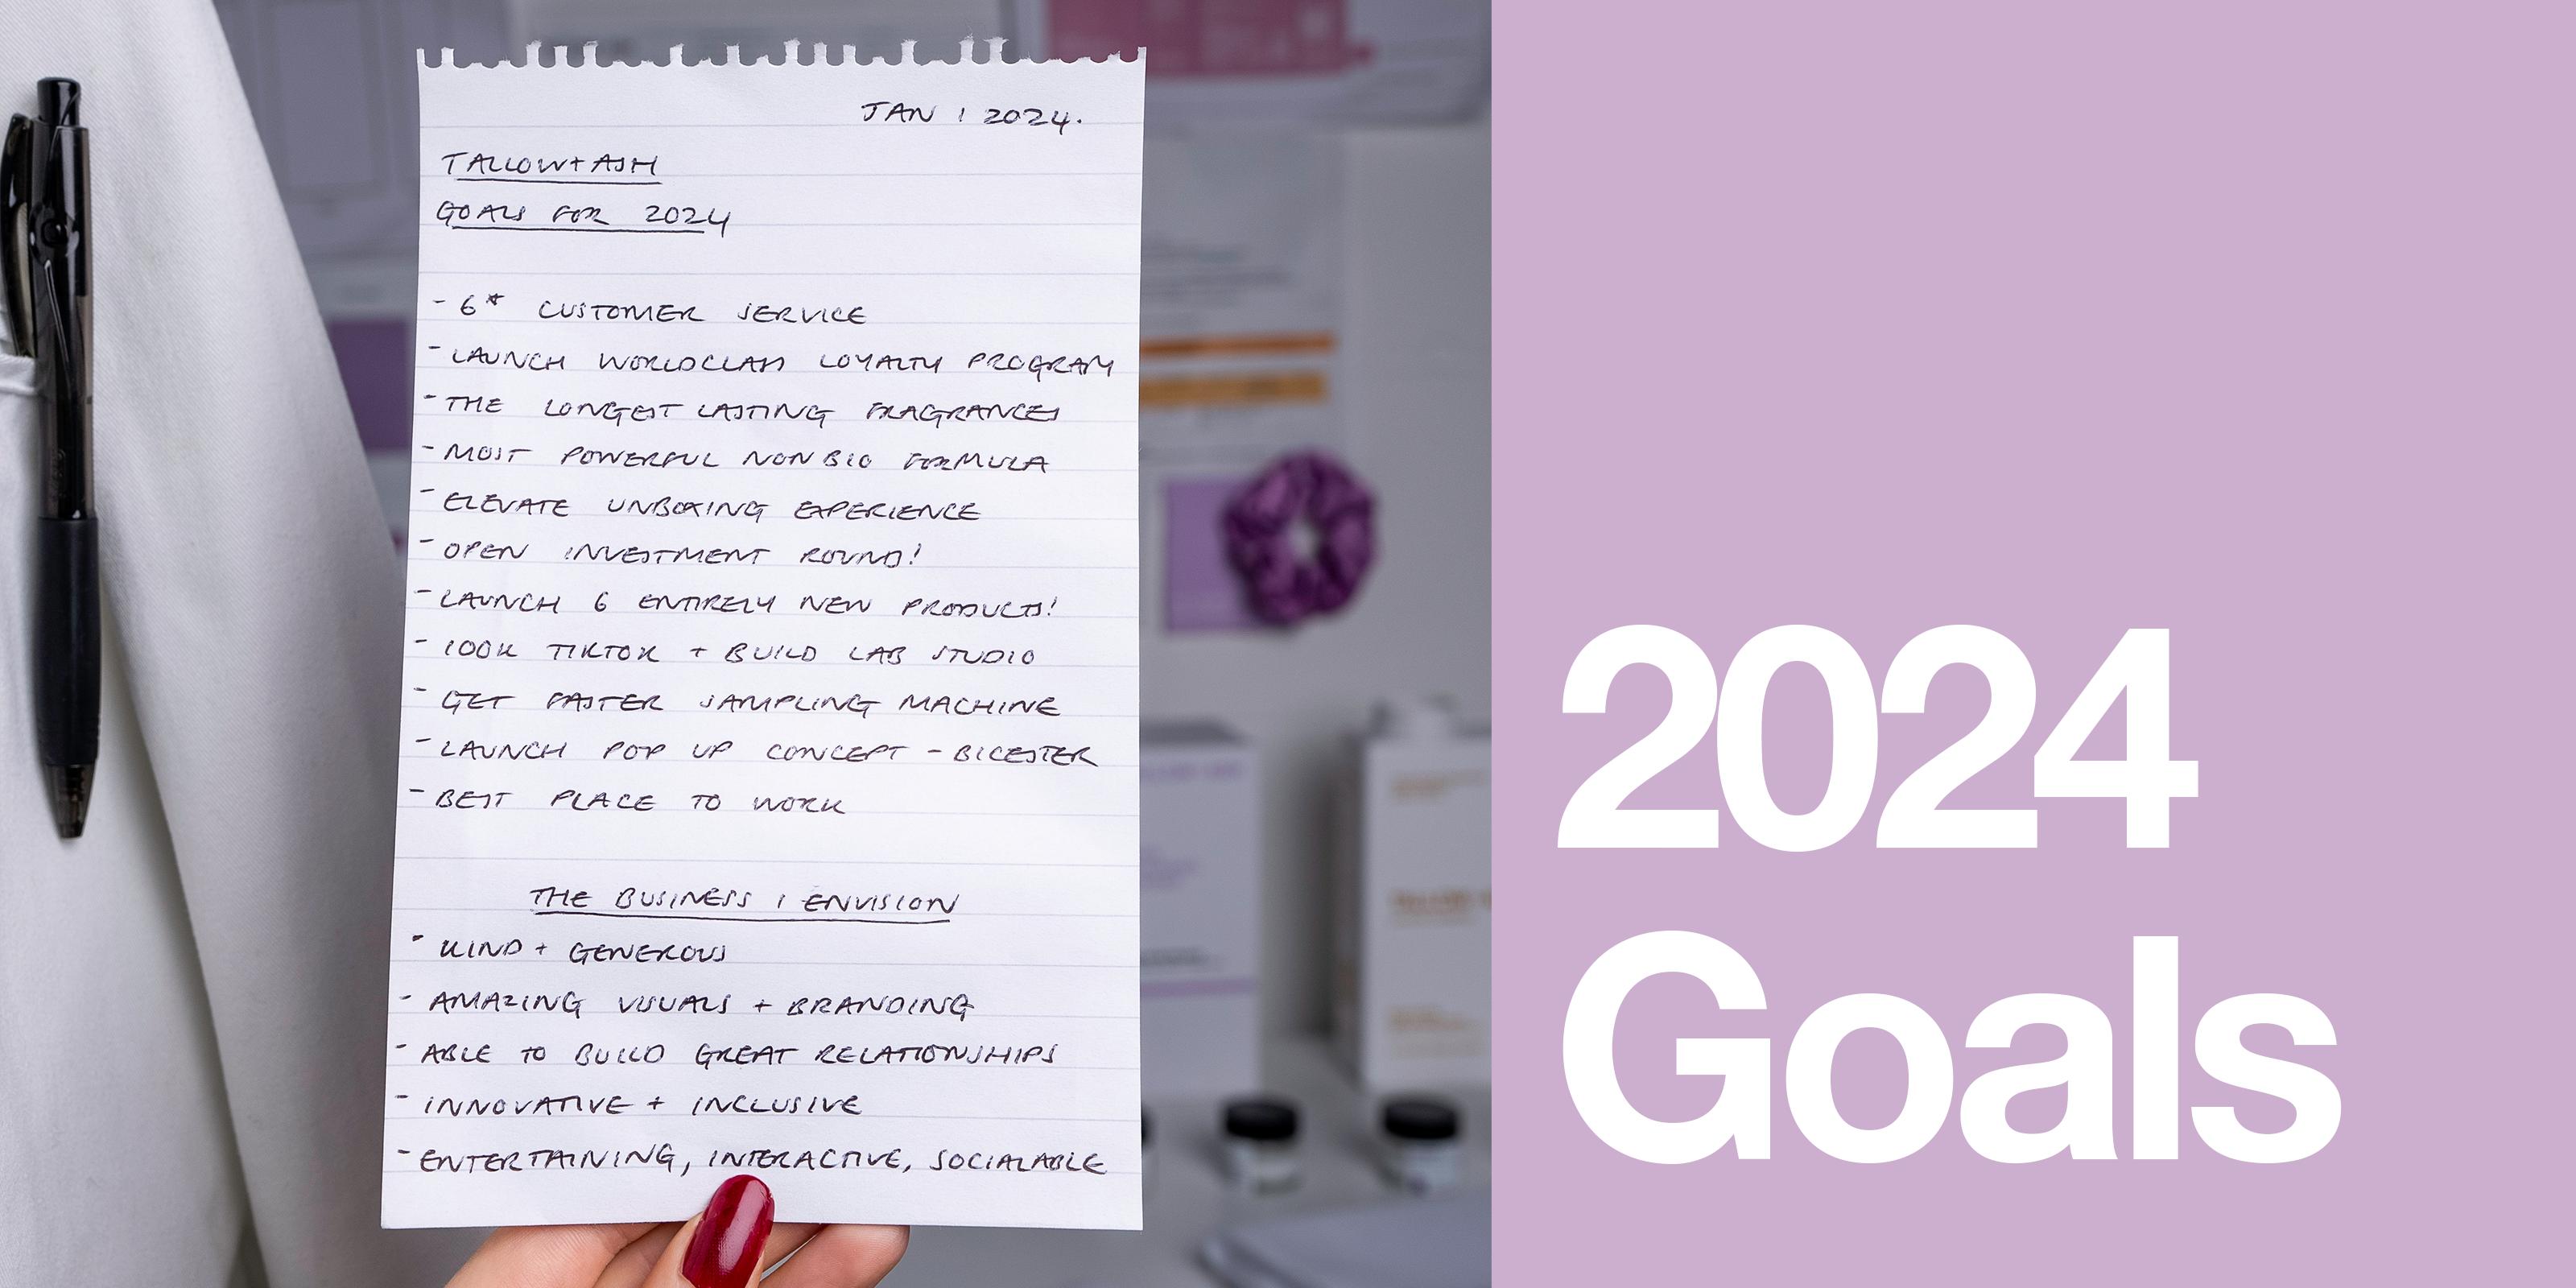 JAN 1 2024.
TALLOW+ASH
GOALS FOR 2024
- 6* CUSTOMER SERVICE
- LAUNCH WORLDCLASS LOYALTY PROGRAM
- THE LONGEST LASTING FRAGRANCES
- MOST POWERFUL NON BIO FORMULA
- ELEVATE UNBOXING EXPERIENCE
- OPEN INVESTMENT ROUND!
- LAUNCH 6 ENTIRELY NEW PRODUCTS!
- 100K TIKTOK + BUILD LAB STUDIO
- GET FASTER SAMPLING MACHINE
- LAUNCH POP UP CONCEPT - BICESTER
- BEST PLACE TO WORK
THE BUSINESS I ENVISION
- KIND + GENEROUS
- AMAZING VISUALS + BRANDING
- ABLE TO BUILD GREAT RELATIONSHIPS
- INNOVATIVE + INCLUSIVE
- ENTERTAINING, INTERACTIVE, SOCIALABLE
2024
Goals